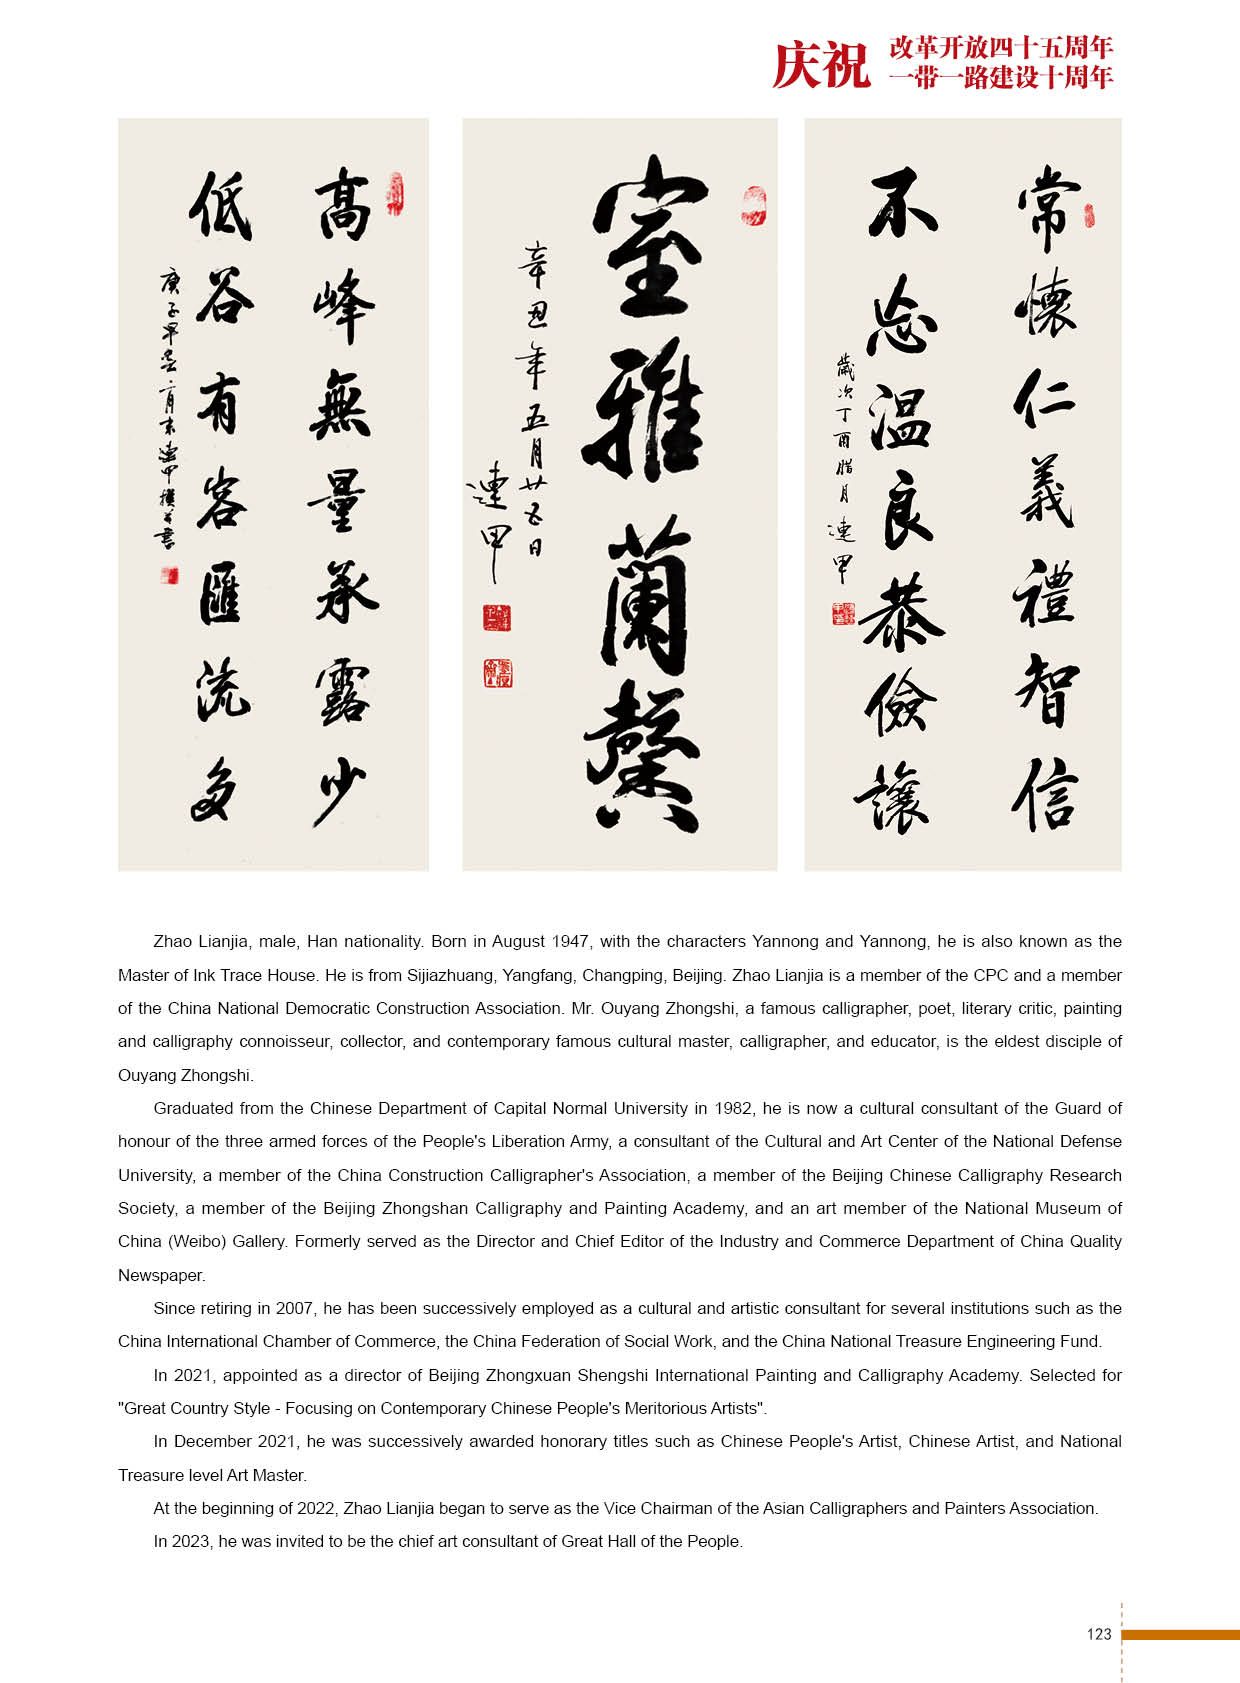 庆祝
改革开放四十五周年
一带一路建设十周年
高峰無量承露少
低谷有容匯流多
室雅蘭馨
辛丑年五月廿五日
連甲
常懷仁義禮智信
不忘温良恭儉讓
歲次丁酉腊月
連甲
Zhao Lianjia, male, Han nationality. Born in August 1947, with the characters Yannong and Yannong, he is also known as the
Master of Ink Trace House. He is from Sijiazhuang, Yangfang, Changping, Beijing. Zhao Lianjia is a member of the CPC and a member
of the China National Democratic Construction Association. Mr. Ouyang Zhongshi, a famous calligrapher, poet, literary critic, painting
and calligraphy connoisseur, collector, and contemporary famous cultural master, calligrapher, and educator, is the eldest disciple of
Ouyang Zhongshi.
Graduated from the Chinese Department of Capital Normal University in 1982, he is now a cultural consultant of the Guard of
honour of the three armed forces of the People's Liberation Army, a consultant of the Cultural and Art Center of the National Defense
University, a member of the China Construction Calligrapher's Association, a member of the Beijing Chinese Calligraphy Research
Society, a member of the Beijing Zhongshan Calligraphy and Painting Academy, and an art member of the National Museum of
China (Weibo) Gallery. Formerly served as the Director and Chief Editor of the Industry and Commerce Department of China Quality
Newspaper.
Since retiring in 2007, he has been successively employed as a cultural and artistic consultant for several institutions such as the
China International Chamber of Commerce, the China Federation of Social Work, and the China National Treasure Engineering Fund.
In 2021, appointed as a director of Beijing Zhongxuan Shengshi International Painting and Calligraphy Academy. Selected for
"Great Country Style - Focusing on Contemporary Chinese People's Meritorious Artists".
In December 2021, he was successively awarded honorary titles such as Chinese People's Artist, Chinese Artist, and National
Treasure level Art Master.
At the beginning of 2022, Zhao Lianjia began to serve as the Vice Chairman of the Asian Calligraphers and Painters Association.
In 2023, he was invited to be the chief art consultant of Great Hall of the People.
123